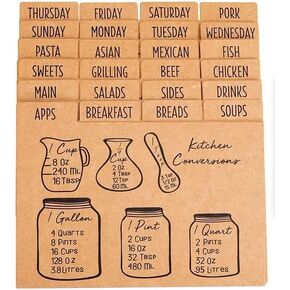 THURSDAY FRIDAY SATURDAY PORK
SUNDAY MONDAY TUESDAY WEDNESDAY
PASTA ASIAN MEXICAN FISH
SWEETS GRILLING BEEF CHICKEN
MAIN SALADS SIDES DRINKS
APPS BREAKFAST BREADS SOUPS
Kitchen
Conversions
1 Cup
8 Oz
240 ML
16 TBSP
1/4 Cup
4 TBSP
12 TSP
60 ML
1 Gallon
4 Quarts
8 Pints
16 Cups
128 Oz
3.8 Litres
1 Pint
2 Cups
16 Oz
32 TBSP
480 ML
1 Quart
2 Pints
4 Cups
32 Oz
.95 Litres